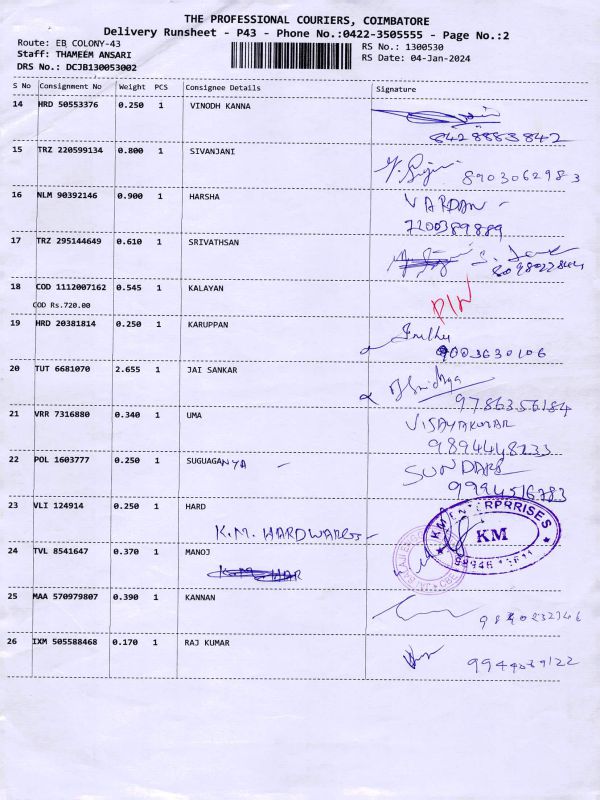 THE PROFESSIONAL COURIERS, COIMBATORE
Delivery Runsheet - P43 - Phone No.:0422-3505555 - Page No.:2
Route: EB COLONY-43
RS No.: 1300530
Staff: THAMEEM ANSARI
RS Date: 04-Jan-2024
DRS No.: DCJB130053002
S No Consignment No Weight PCS Consignee Details Signature
14 HRD 50553376 0.250 1 VINODH KANNA
8428883842
15 TRZ 220599134 0.800 1 SIVANJANI
8903062983
16 NLM 90392146 0.900 1 HARSHA VARDAN -
7200389889
17 TRZ 295144649 0.610 1 SRIVATHSAN
18 COD 1112007162 0.545 1 KALAYAN
COD Rs.720.00
19 HRD 20381814 0.250 1 KARUPPAN
9003630106
20 TUT 6681070 2.655 1 JAI SANKAR
9786356184
21 VRR 7316880 0.340 1 UMA VIJAYAKUMAR
9894448233
22 POL 1603777 0.250 1 SUGUAGANYA - SUNDARI
9994516783
23 VLI 124914 0.250 1 HARD
K.M. HARDWARES -
KM ENTERPRRISES
KM
24 TVL 8541647 0.370 1 MANOJ
25 MAA 570979807 0.390 1 KANNAN
26 IXM 505588468 0.170 1 RAJ KUMAR